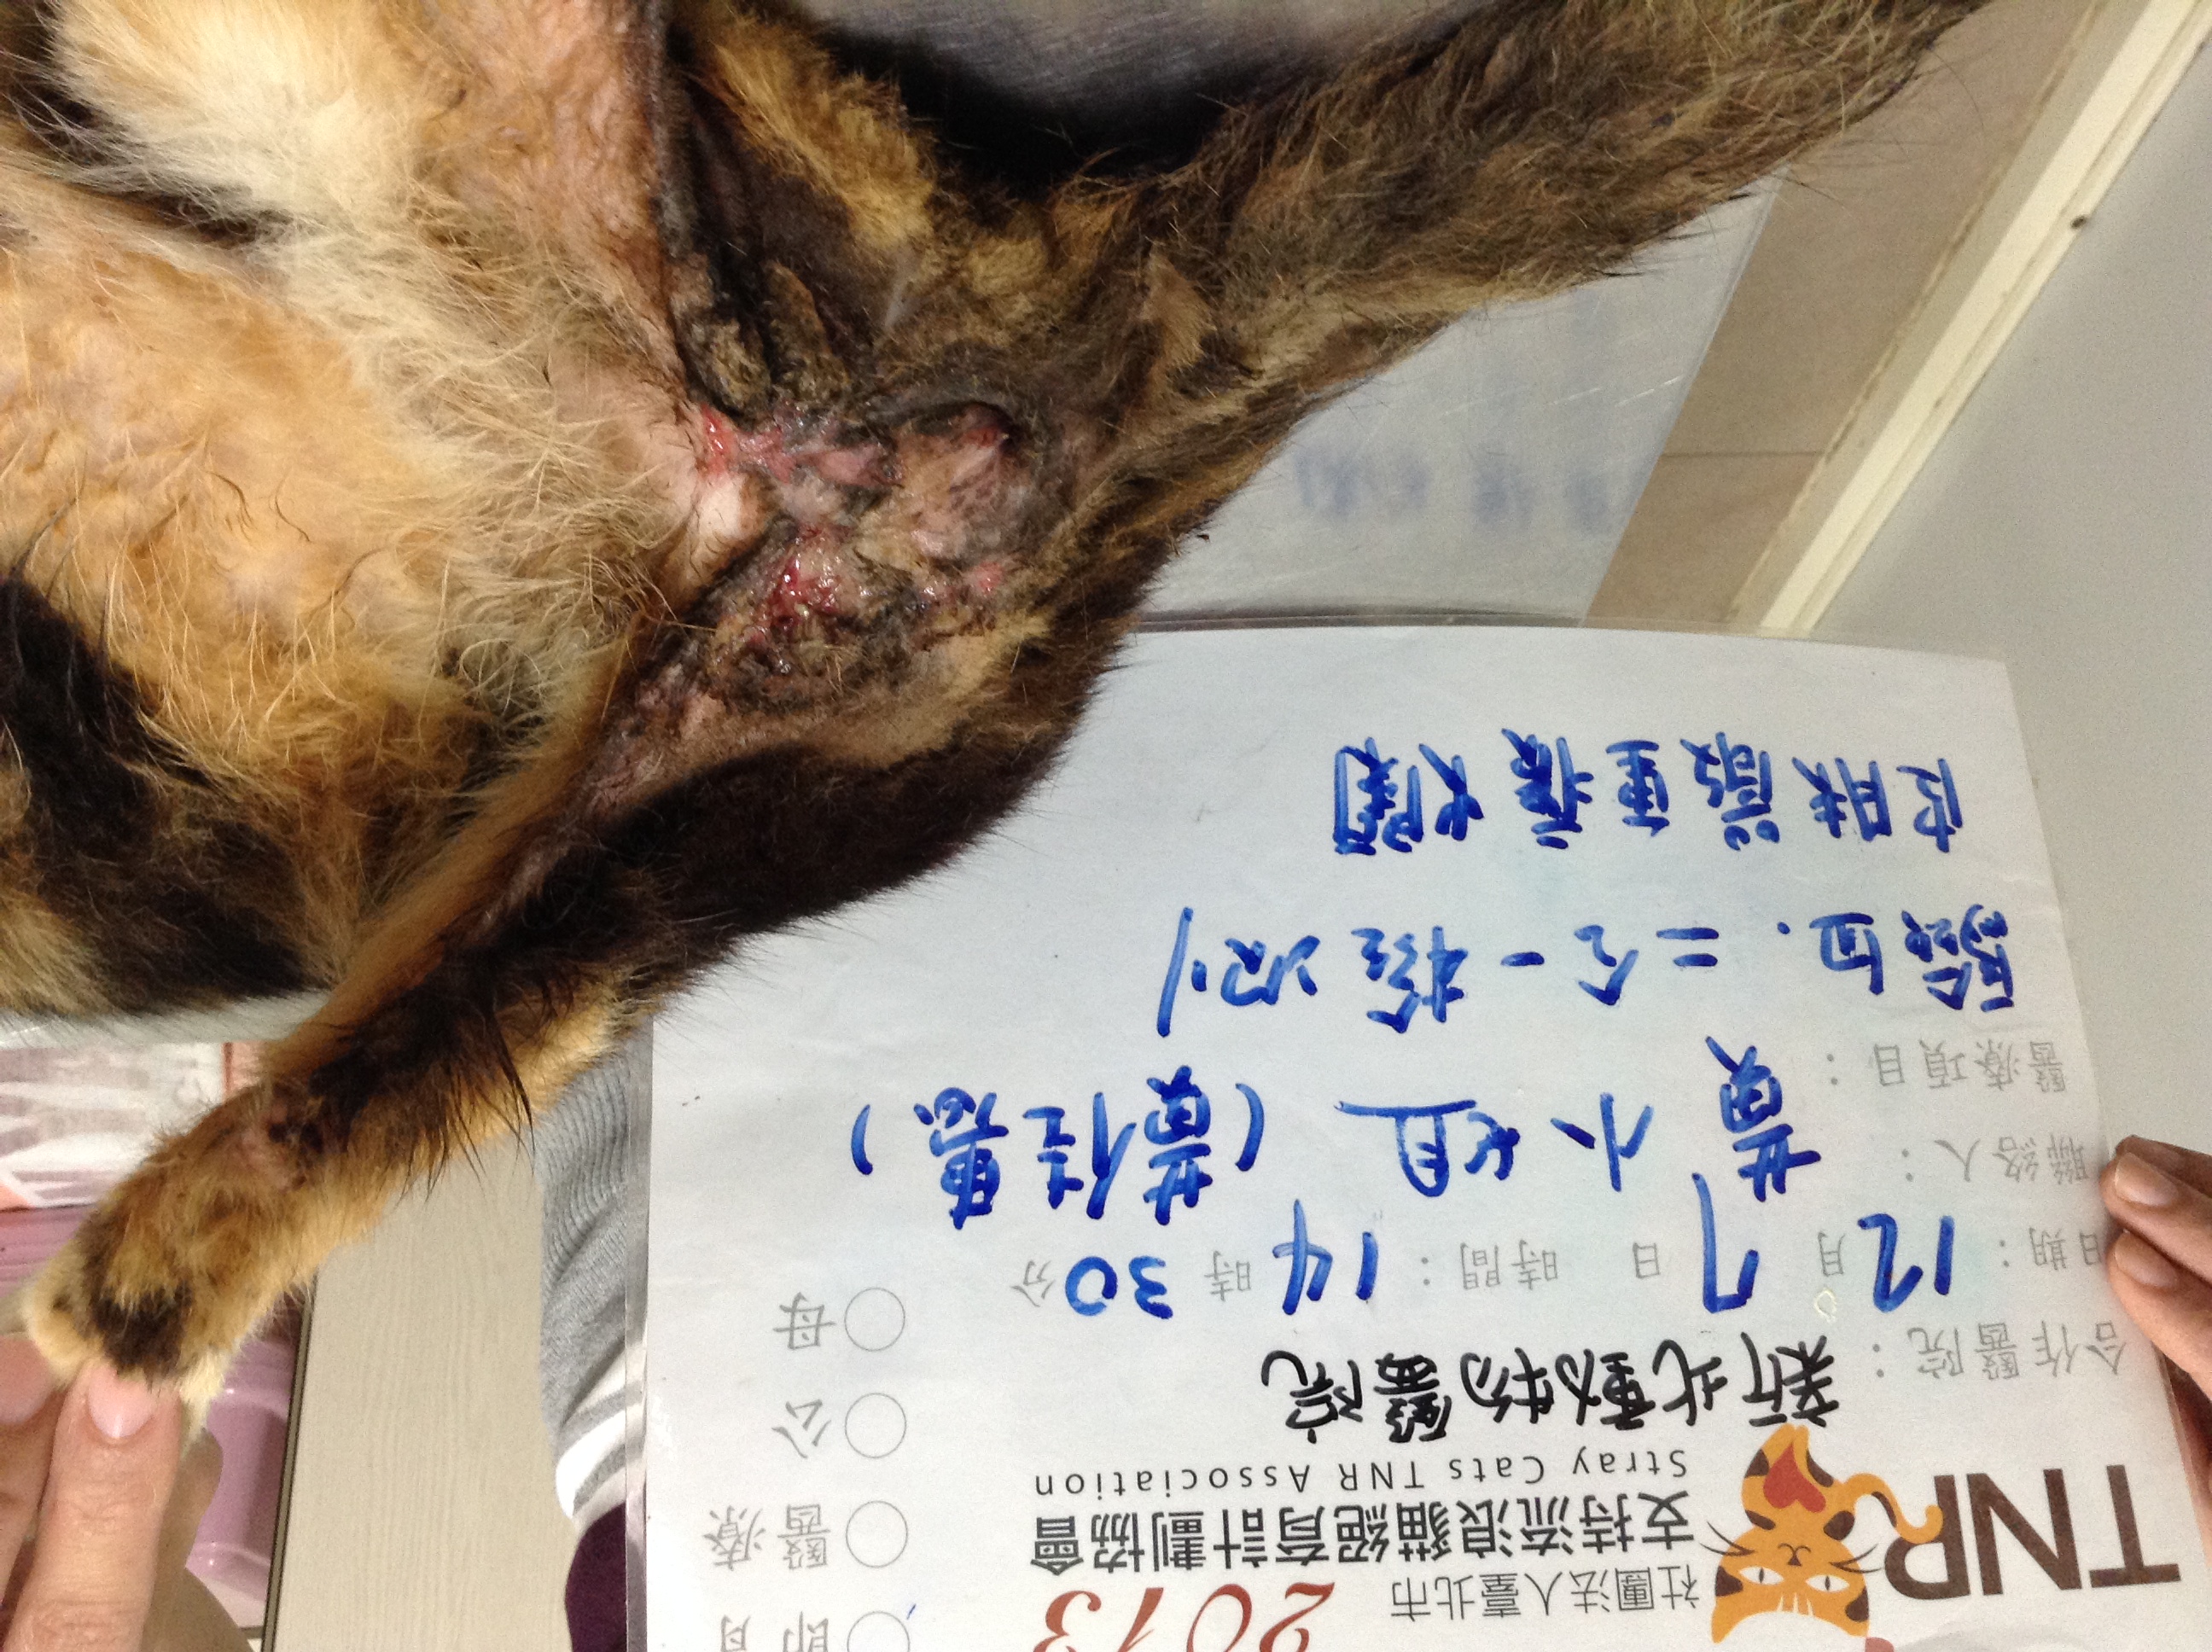 2013
TNR
社團法人臺北市
支持流浪貓絕育計劃協會
Stray Cats TNR Association
合作醫院：新北動物醫院
日期：12月7日 時間：14時30分
聯絡人：黃小姐（黃佳惠）
醫療項目：
驗血．二合一檢測
皮膚嚴重腐爛
醫療
公
母